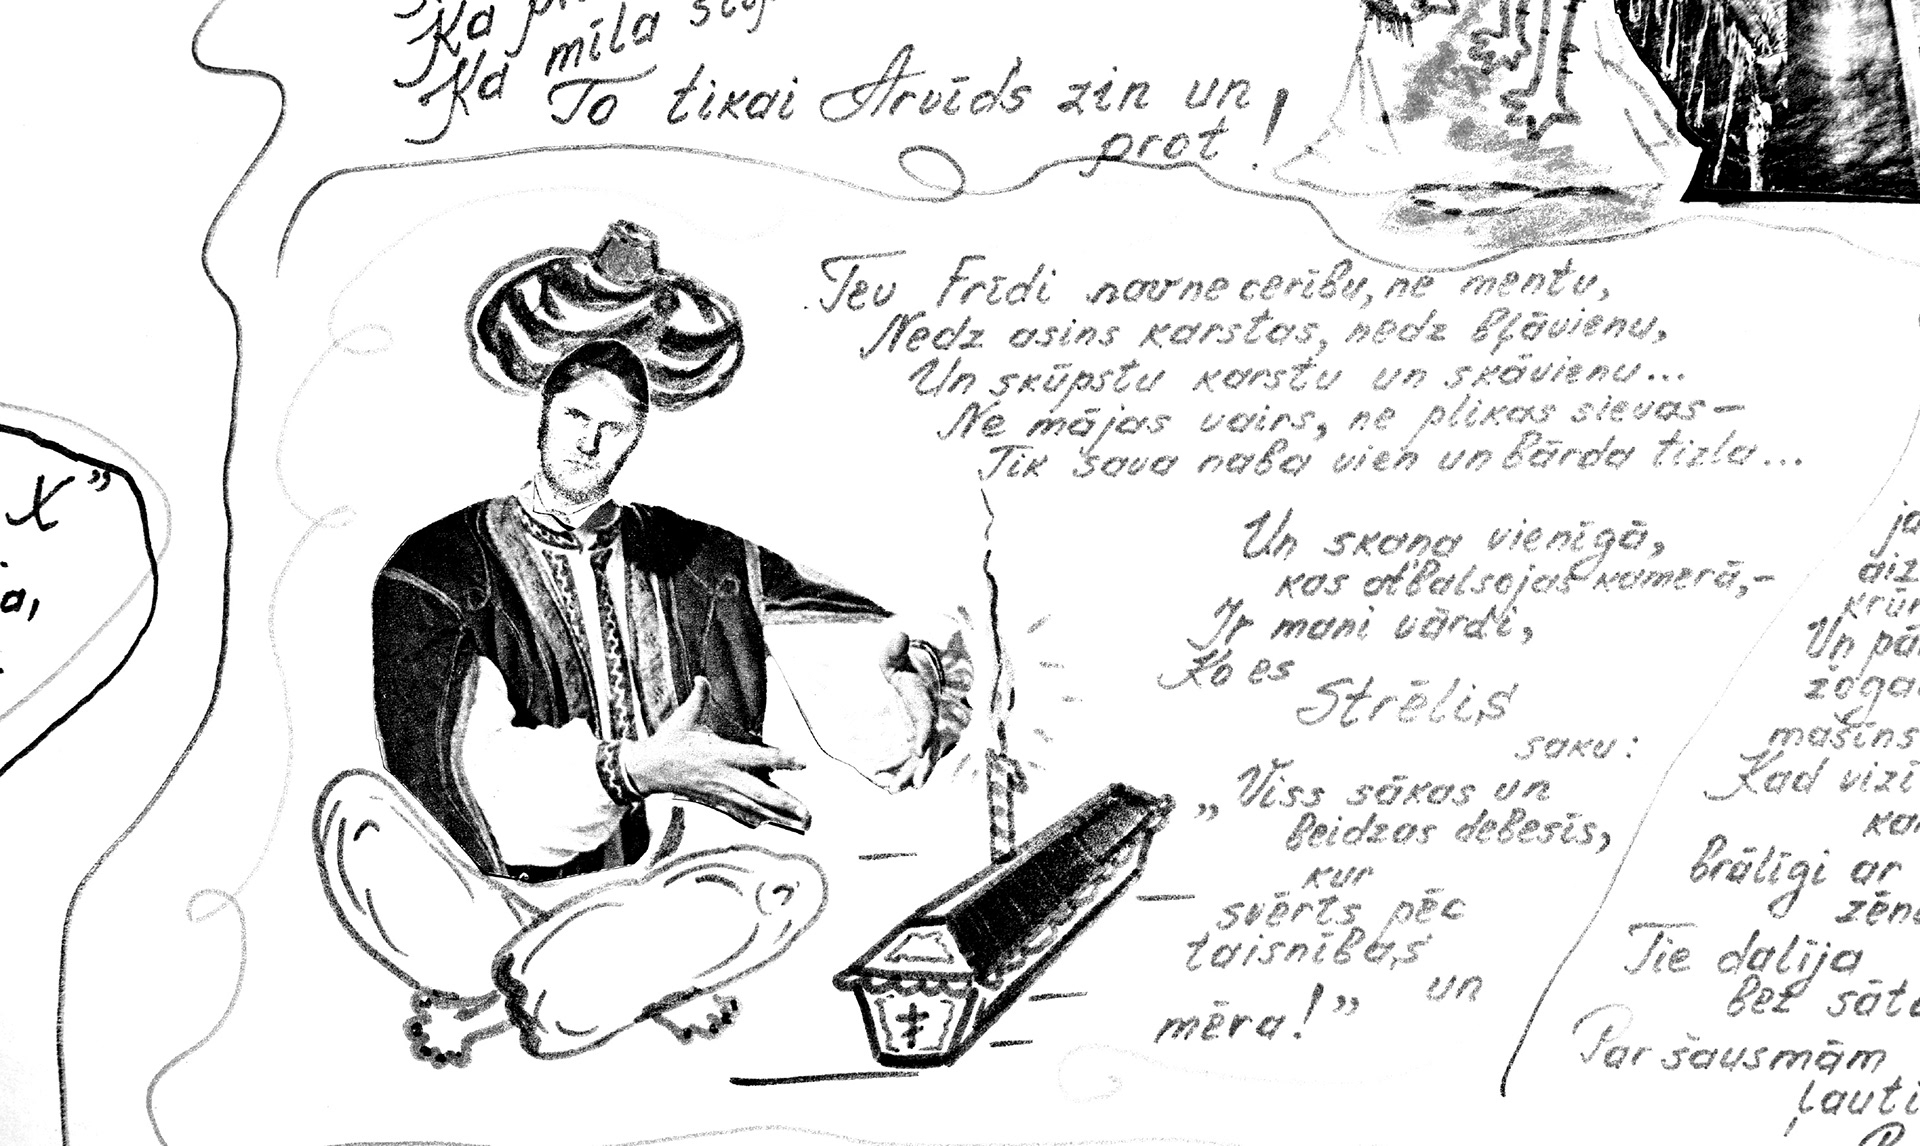 Ka
Ka mīla
Ka
To tikai Arvīds zin un
prot!
Tev Frīdi nav ne cerību, ne mentu,
Nedz asins karstas, nedz bļāvienu,
Un skūpstu karstu un skāvienu...
Ne mājas vairs, ne plikas sievas –
Tik sava naba vien un bārda tizla...
Un skaņa vienīgā,
kas atbalsojas kamerā,–
Ir mani vārdi,
Ko es
Strēlis
saku:
„Viss sākas un
beidzas debesīs,
kur
svērts pēc
taisnības
un
mēra!”
X”
a,
ja
aiz
krūn
Un pā
žoga
mašīns
Kad vizī
kan
brālīgi ar
zēn
Tie dalīja
bez sāt
Par šausmām
ļauti